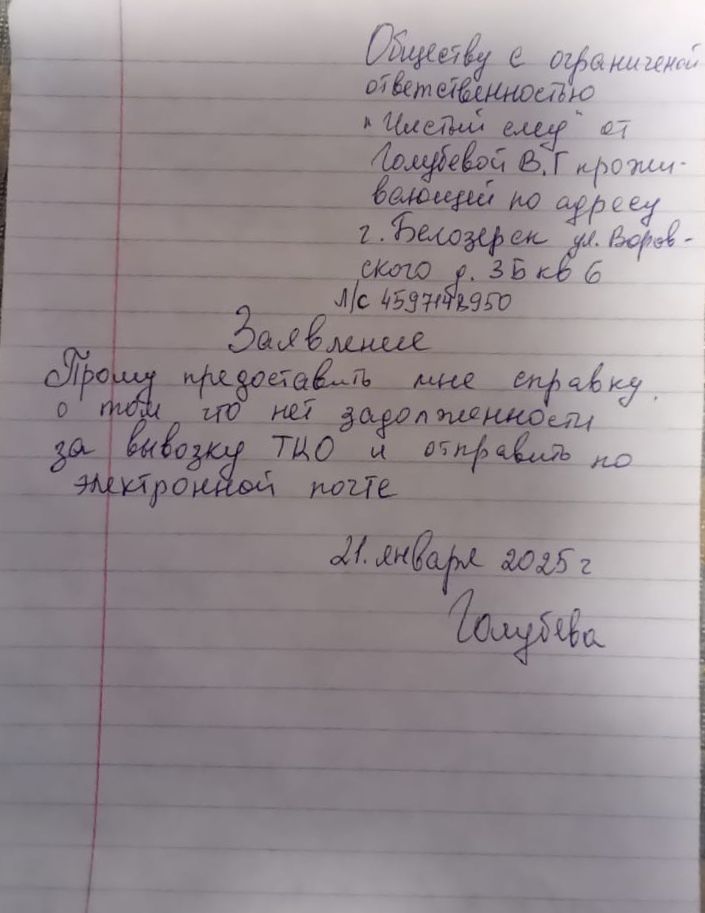 Обществу с ограниченой
ответственностью
"Чистый след" от
Голубевой В.Г прожи-
вающей по адресу
г. Белозерск ул. Воров-
ского д. 3Б кв 6
Л/с 4597148950
Заявление
Прошу предоставить мне справку
о том что нет задолженности
за вывозку ТКО и отправить по
электронной почте
21. января 2025 г
Голубева